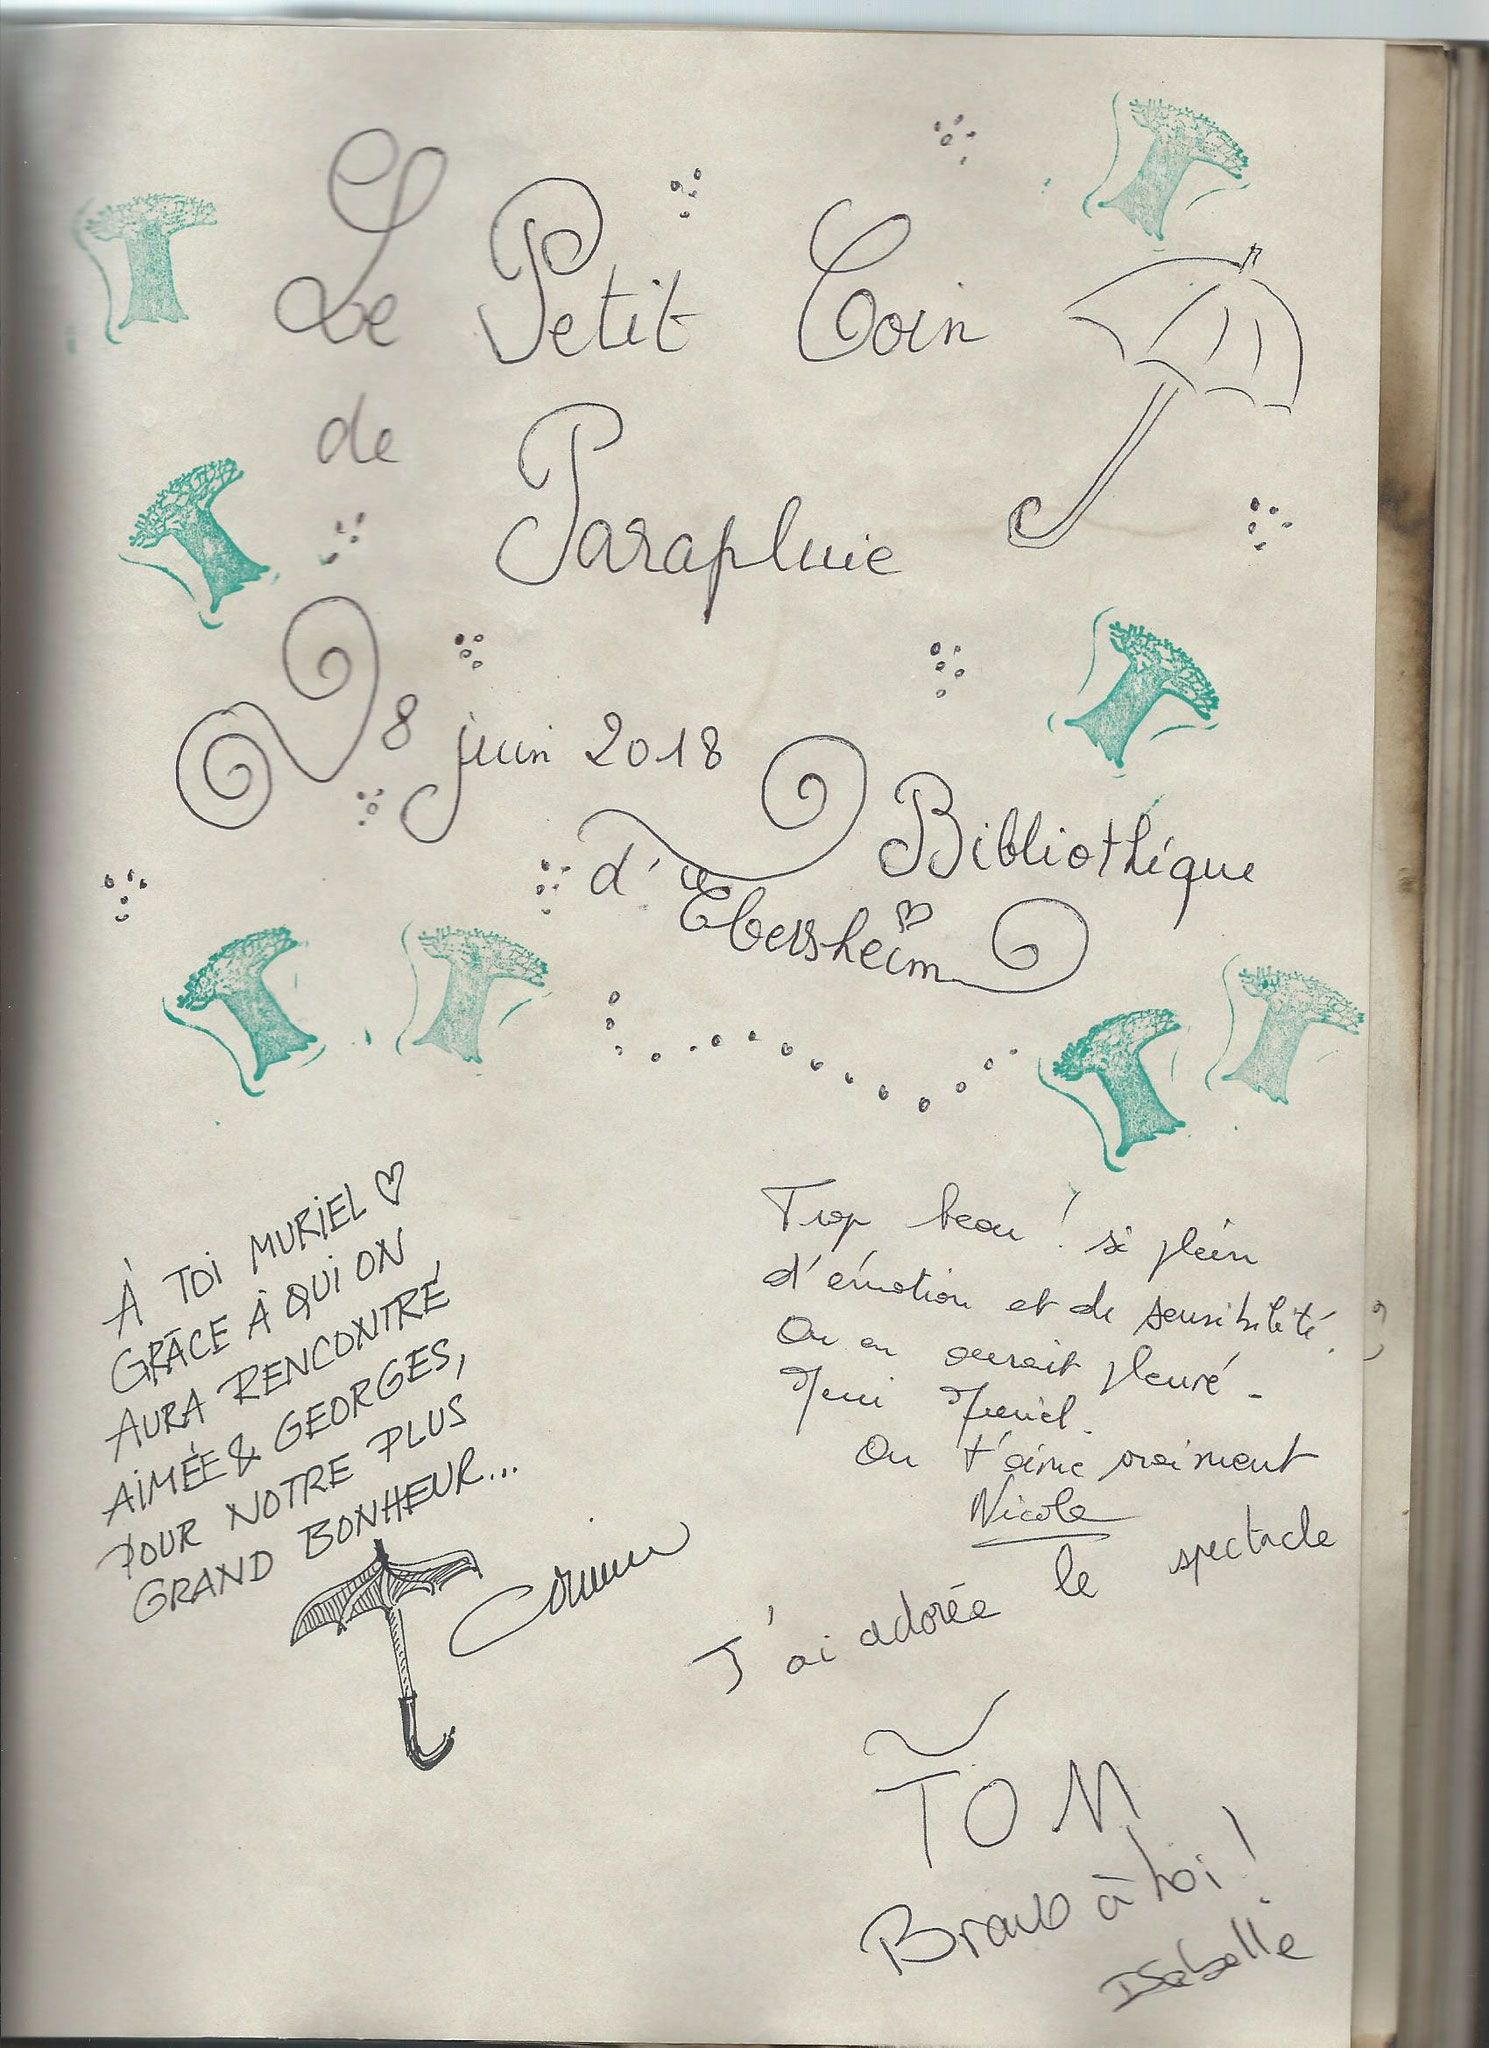 Le Petit Coin
de Parapluie
8 juin 2018
Bibliothéque
d'Ebersheim
À TOI MURIEL ♡
GRÂCE À QUI ON
AURA RENCONTRÉ
AIMÉE & GEORGES,
POUR NOTRE PLUS
GRAND BONHEUR...
Trop beau ! si plein
d'émotion et de sensibilité.
On en aurait pleuré -
Merci Muriel.
On t'aime vraiment
Nicole
J'ai adorée le spectacle
TOM
Bravo à toi !
Isabelle